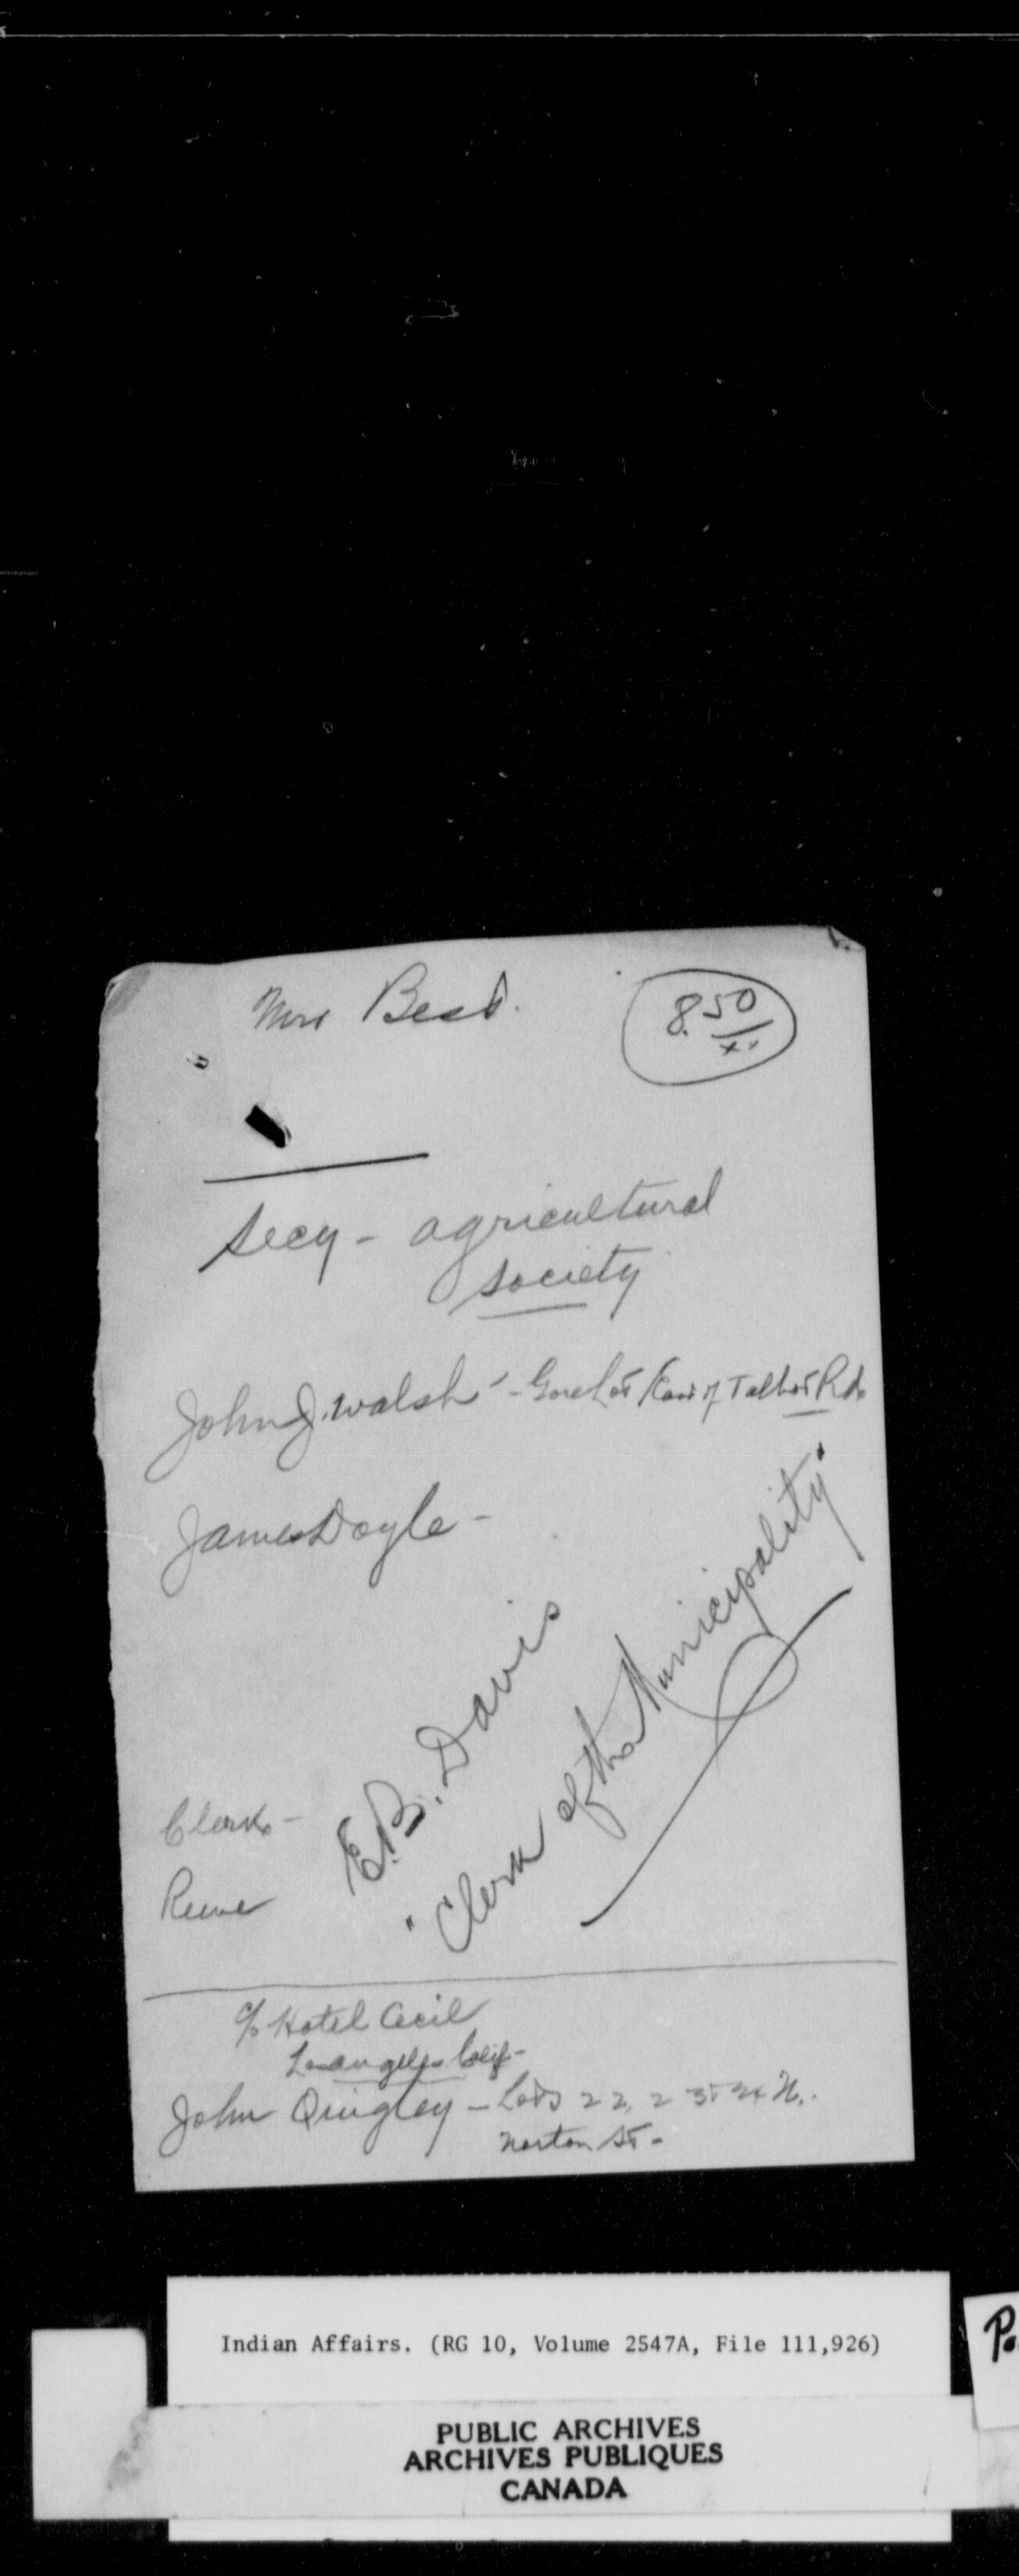 Mrs Best.
8.50
xx
Secy - agricultural
society
John J. Walsh - Gore Lot East of Talbot Rd.
James Doyle -
E.B. Davis
"Clerk of the Municipality"
Clerk -
Reeve
c/o Hotel Cecil
Los Angeles Calif -
John Quigley - Lots 22, 23 + 24 N.
Norton St -
Indian Affairs. (RG 10, Volume 2547A, File 111,926)
PUBLIC ARCHIVES
ARCHIVES PUBLIQUES
CANADA